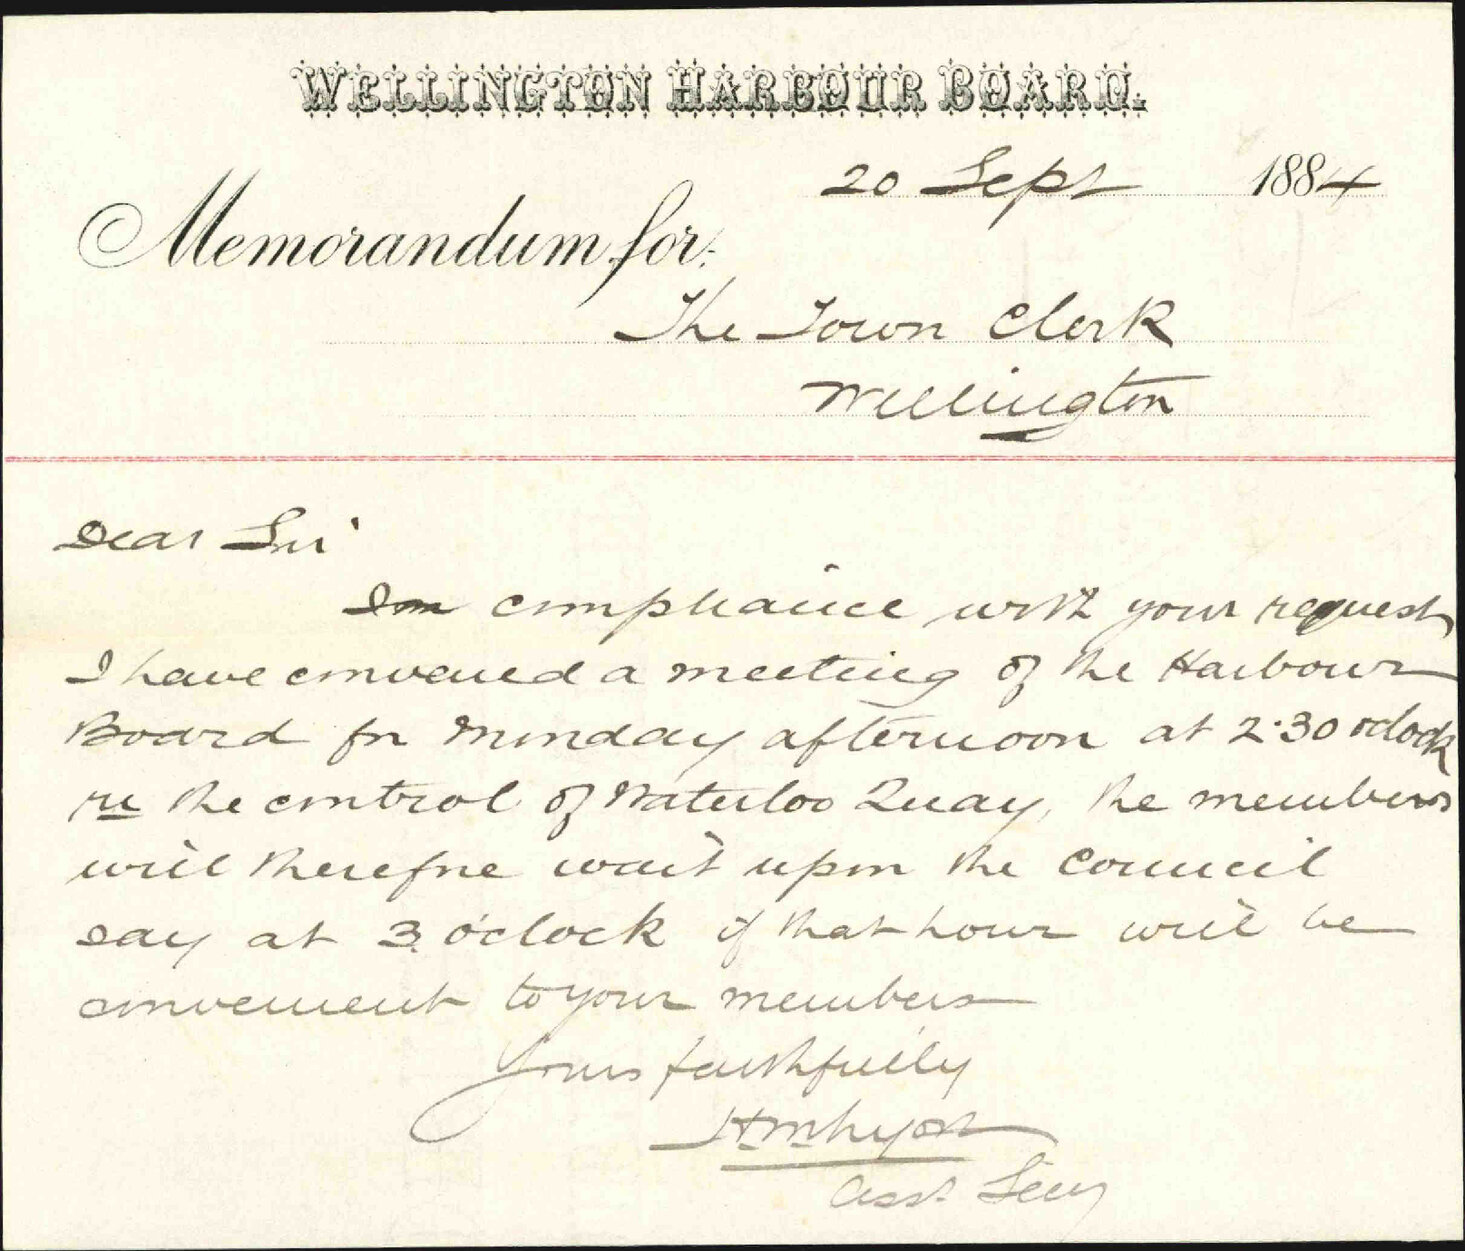 WELLINGTON HARBOUR BOARD.
20 Sept 1884
Memorandum for:
The Town Clerk
Wellington
Dear Sir
In compliance with your request
I have convened a meeting of the Harbour
Board for Monday afternoon at 2.30 o'clock
re the control of Waterloo Quay, the members
will therefore wait upon the Council
say at 3 o'clock if that hour will be
convenient to your members
Yours faithfully
Asst Secy